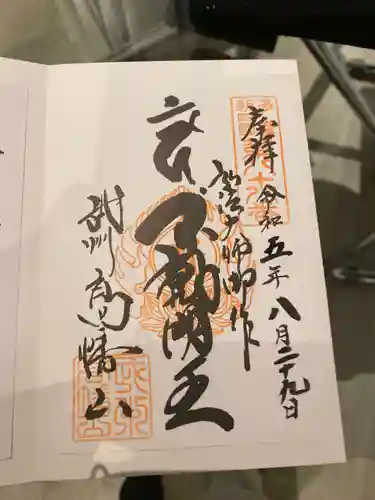 奉拝
令和五年八月二十九日
弘法大師御作
交通 不動明王
武州 高幡山